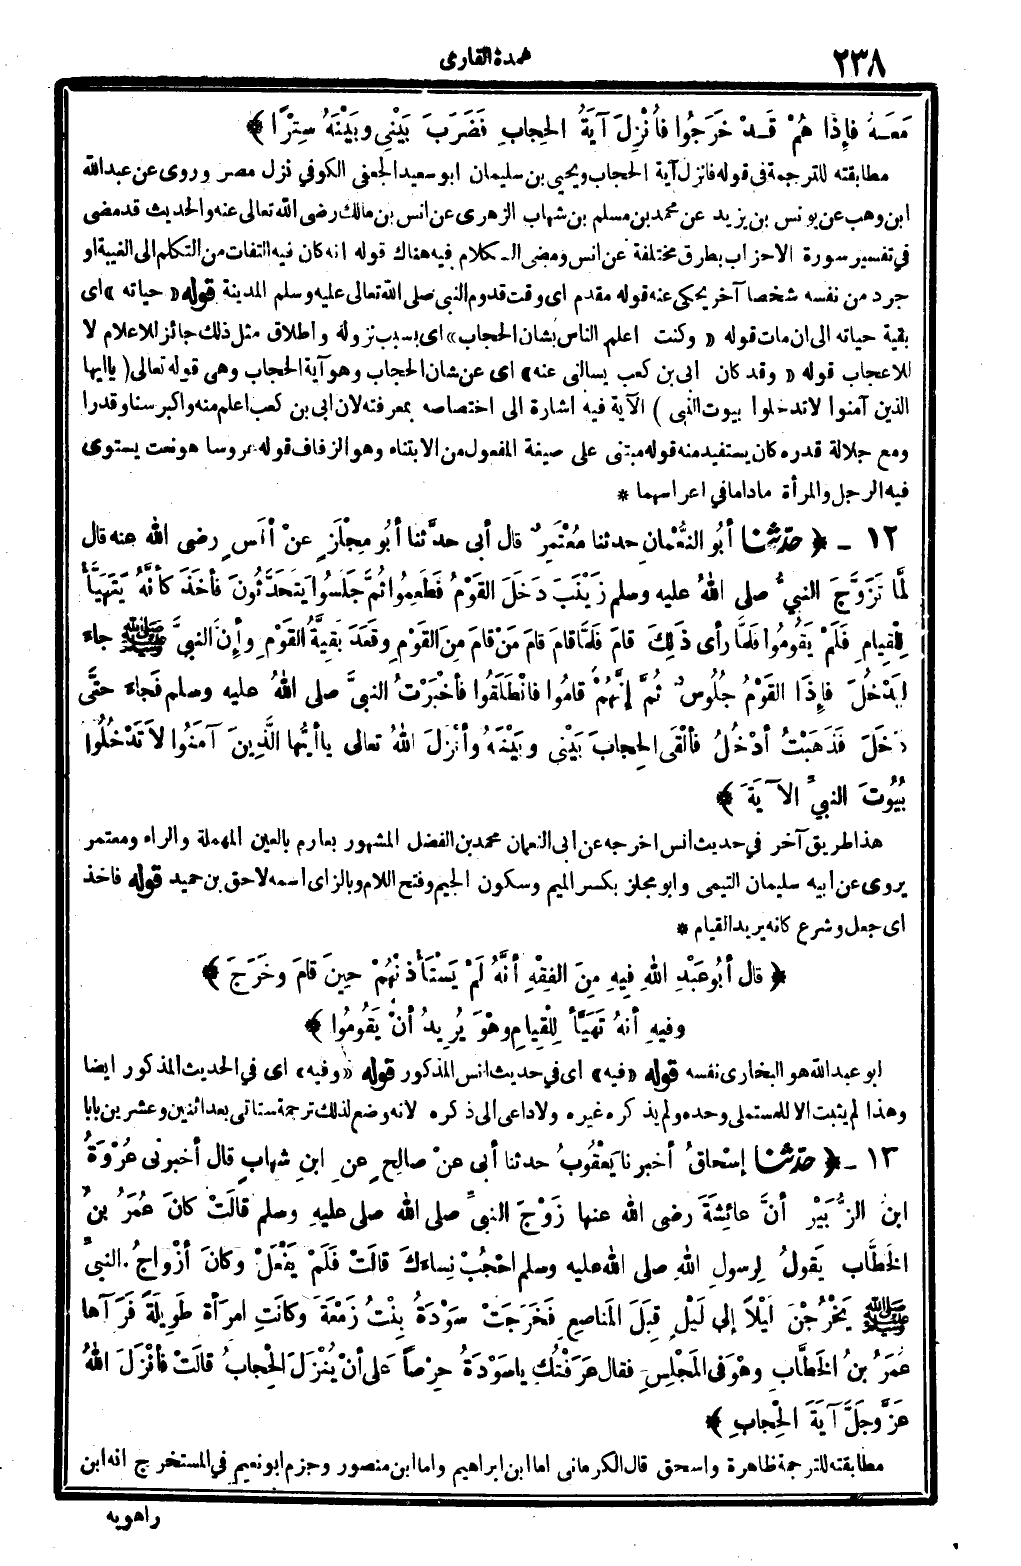 ٢٣٨
عمدة القارى
مَعَهُ فإِذا هُمْ قَدْ خَرَجُوا فأُنْزِلَ آيَةُ الحِجابِ فَضَرَبَ بَيْنِي وبَيْنَهُ سِتْرًا ﴾
مطابقته للترجمة فى قوله فانزل آية الحجاب ويحيى بن سليمان ابو سعيد الجعفى الكوفي نزل مصر وروى عن عبدالله
ابن وهب عن يونس بن يزيد عن محمد بن مسلم بن شهاب الزهرى عن انس بن مالك رضى الله تعالى عنه والحديث قد مضى
في تفسير سورة الاحزاب بطرق مختلفة عن انس ومضى الـكلام فيه هناك قوله انه كان فيه التفات من التكلم الى الغيبة او
جرد من نفسه شخصا آخر يحكى عنه قوله مقدم اى وقت قدوم النبى صلى الله تعالى عليه وسلم المدينة قوله «حياته» اى
بقية حياته الى ان مات قوله « وكنت اعلم الناس بشان الحجاب» اى بسبب نزوله واطلاق مثل ذلك جائز للاعلام لا
للاعجاب قوله « وقد كان ابى بن كعب يسالنى عنه» اى عن شان الحجاب وهو آية الحجاب وهى قوله تعالى ( ياايها
الذين آمنوا لاتدخلوا بيوت النبى ) الآية فيه اشارة الى اختصاصه بمعرفته لان ابى بن كعب اعلم منه واكبر سنا وقدرا
ومع جلالة قدره كان يستفيد منه قوله مبتنى على صيغة المفعول من الابتناء وهو الزفاف قوله عروسا هو نعت يستوى
فيه الرجل والمرأة ماداما في اعراسهما *
١٢ ـ ﴿ حدّثنا أبُو النُّعْمانِ حدثنا مُعْتَمِرٌ قال أبى حدّثنا أبُو مِجْلَزٍ عنْ أنَسٍ رضى الله عنه قال
لَمَّا تَزَوَّجَ النبيُّ صلى اللهُ عليه وسلم زَيْنَبَ دَخَلَ القَوْمُ فَطَعِمُوا ثُمَّ جَلَسُوا يَتحَدَّثُونَ فأخَذَ كأنَّهُ يَتَهَيَّأُ
لِلْقِيامِ فَلَمْ يَقُومُوا فلمَّا رأى ذَلِكَ قامَ فَلمَّا قامَ قامَ مَنْ قامَ مِنَ القَوْمِ وقَعَدَ بَقِيَّةُ القَوْمِ وإِنَّ النبيَّ ﷺ جاءَ
لِيَدْخُلَ فإِذَا القَوْمُ جُلُوسٌ ثُمَّ إِنَّهُمْ قامُوا فانْطَلَقُوا فأخْبَرْتُ النبيَّ صلى اللهُ عليه وسلم فَجاءَ حتَّى
دَخَلَ فَذَهَبْتُ أدْخُلُ فألْقَى الحِجابَ بَيْنِى وبَيْنَهُ وأنْزَلَ اللهُ تعالى ياأيُّها الَّذِينَ آمَنُوا لاَ تَدْخُلُوا
بُيُوتَ النبيِّ الآيَةَ ﴾
هذا طريق آخر في حديث انس اخرجه عن ابى النعمان محمد بن الفضل المشهور بعارم بالعين المهملة والراء ومعتمر
يروى عن ابيه سليمان التيمى وابو مجلز بكسر الميم وسكون الجيم وفتح اللام وبالزاى اسمه لاحق بن حميد قوله فاخذ
اى جعل وشرع كانه يريد القيام *
﴿ قال أبُو عَبْدِ اللهِ فِيهِ مِنَ الفِقْهِ أنَّهُ لَمْ يَسْتَأْذِنْهُمْ حِينَ قامَ وخَرَجَ ﴾
وفيهِ أنهُ تَهَيَّأَ لِلْقِيامِ وهْوَ يُرِيدُ أنْ يَقُومُوا ﴾
ابو عبدالله هو البخارى نفسه قوله «فيه» اى في حديث انس المذكور قوله «وفيه» اى في الحديث المذكور ايضا
وهذا لم يثبت الا للمستملى وحده ولم يذكره غيره ولا داعى الى ذكره لانه وضع لذلك ترجمة ستاتى بعد اثنين وعشرين بابا
١٣ ـ ﴿ حدّثنا إسْحاقُ أخبرنا يَعْقُوبُ حدثنا أبى عنْ صالِحٍ عنِ ابنِ شهابٍ قال أخبرنى عُرْوَةُ
ابنُ الزُّبَيْرِ أنَّ عائِشَةَ رضى الله عنها زَوْجَ النبيِّ صلى الله صلى عليهِ وسلم قالَتْ كانَ عُمَرُ بنُ
الخَطَّابِ يَقولُ لِرسولِ اللهِ صلى الله عليه وسلم احْجُبْ نِساءَكَ قالَتْ فَلَمْ يَفْعَلْ وكانَ أزْواجُ النبيِّ
ﷺ يَخْرُجْنَ لَيْلاً إلى لَيْلٍ قِبَلَ المَناصِعِ فَخَرَجَتْ سَوْدَةُ بِنْتُ زَمْعَةَ وكانَتِ امرَأةً طَوِيلَةً فَرَآها
عُمَرُ بنُ الخَطَّابِ وهْوَ فى المَجْلِسِ فقال عَرَفْتُكِ ياسَوْدَةُ حِرْصاً عَلى أنْ يُنْزَلَ الحِجابُ قالَتْ فأنْزَلَ اللهُ
عزَّ وجلَّ آيَةَ الحِجابِ ﴾
مطابقته للترجمة ظاهرة واسحق قال الكرمانى اما ابن ابراهيم واما ابن منصور وجزم ابو نعيم في المستخرج انه ابن
راهويه